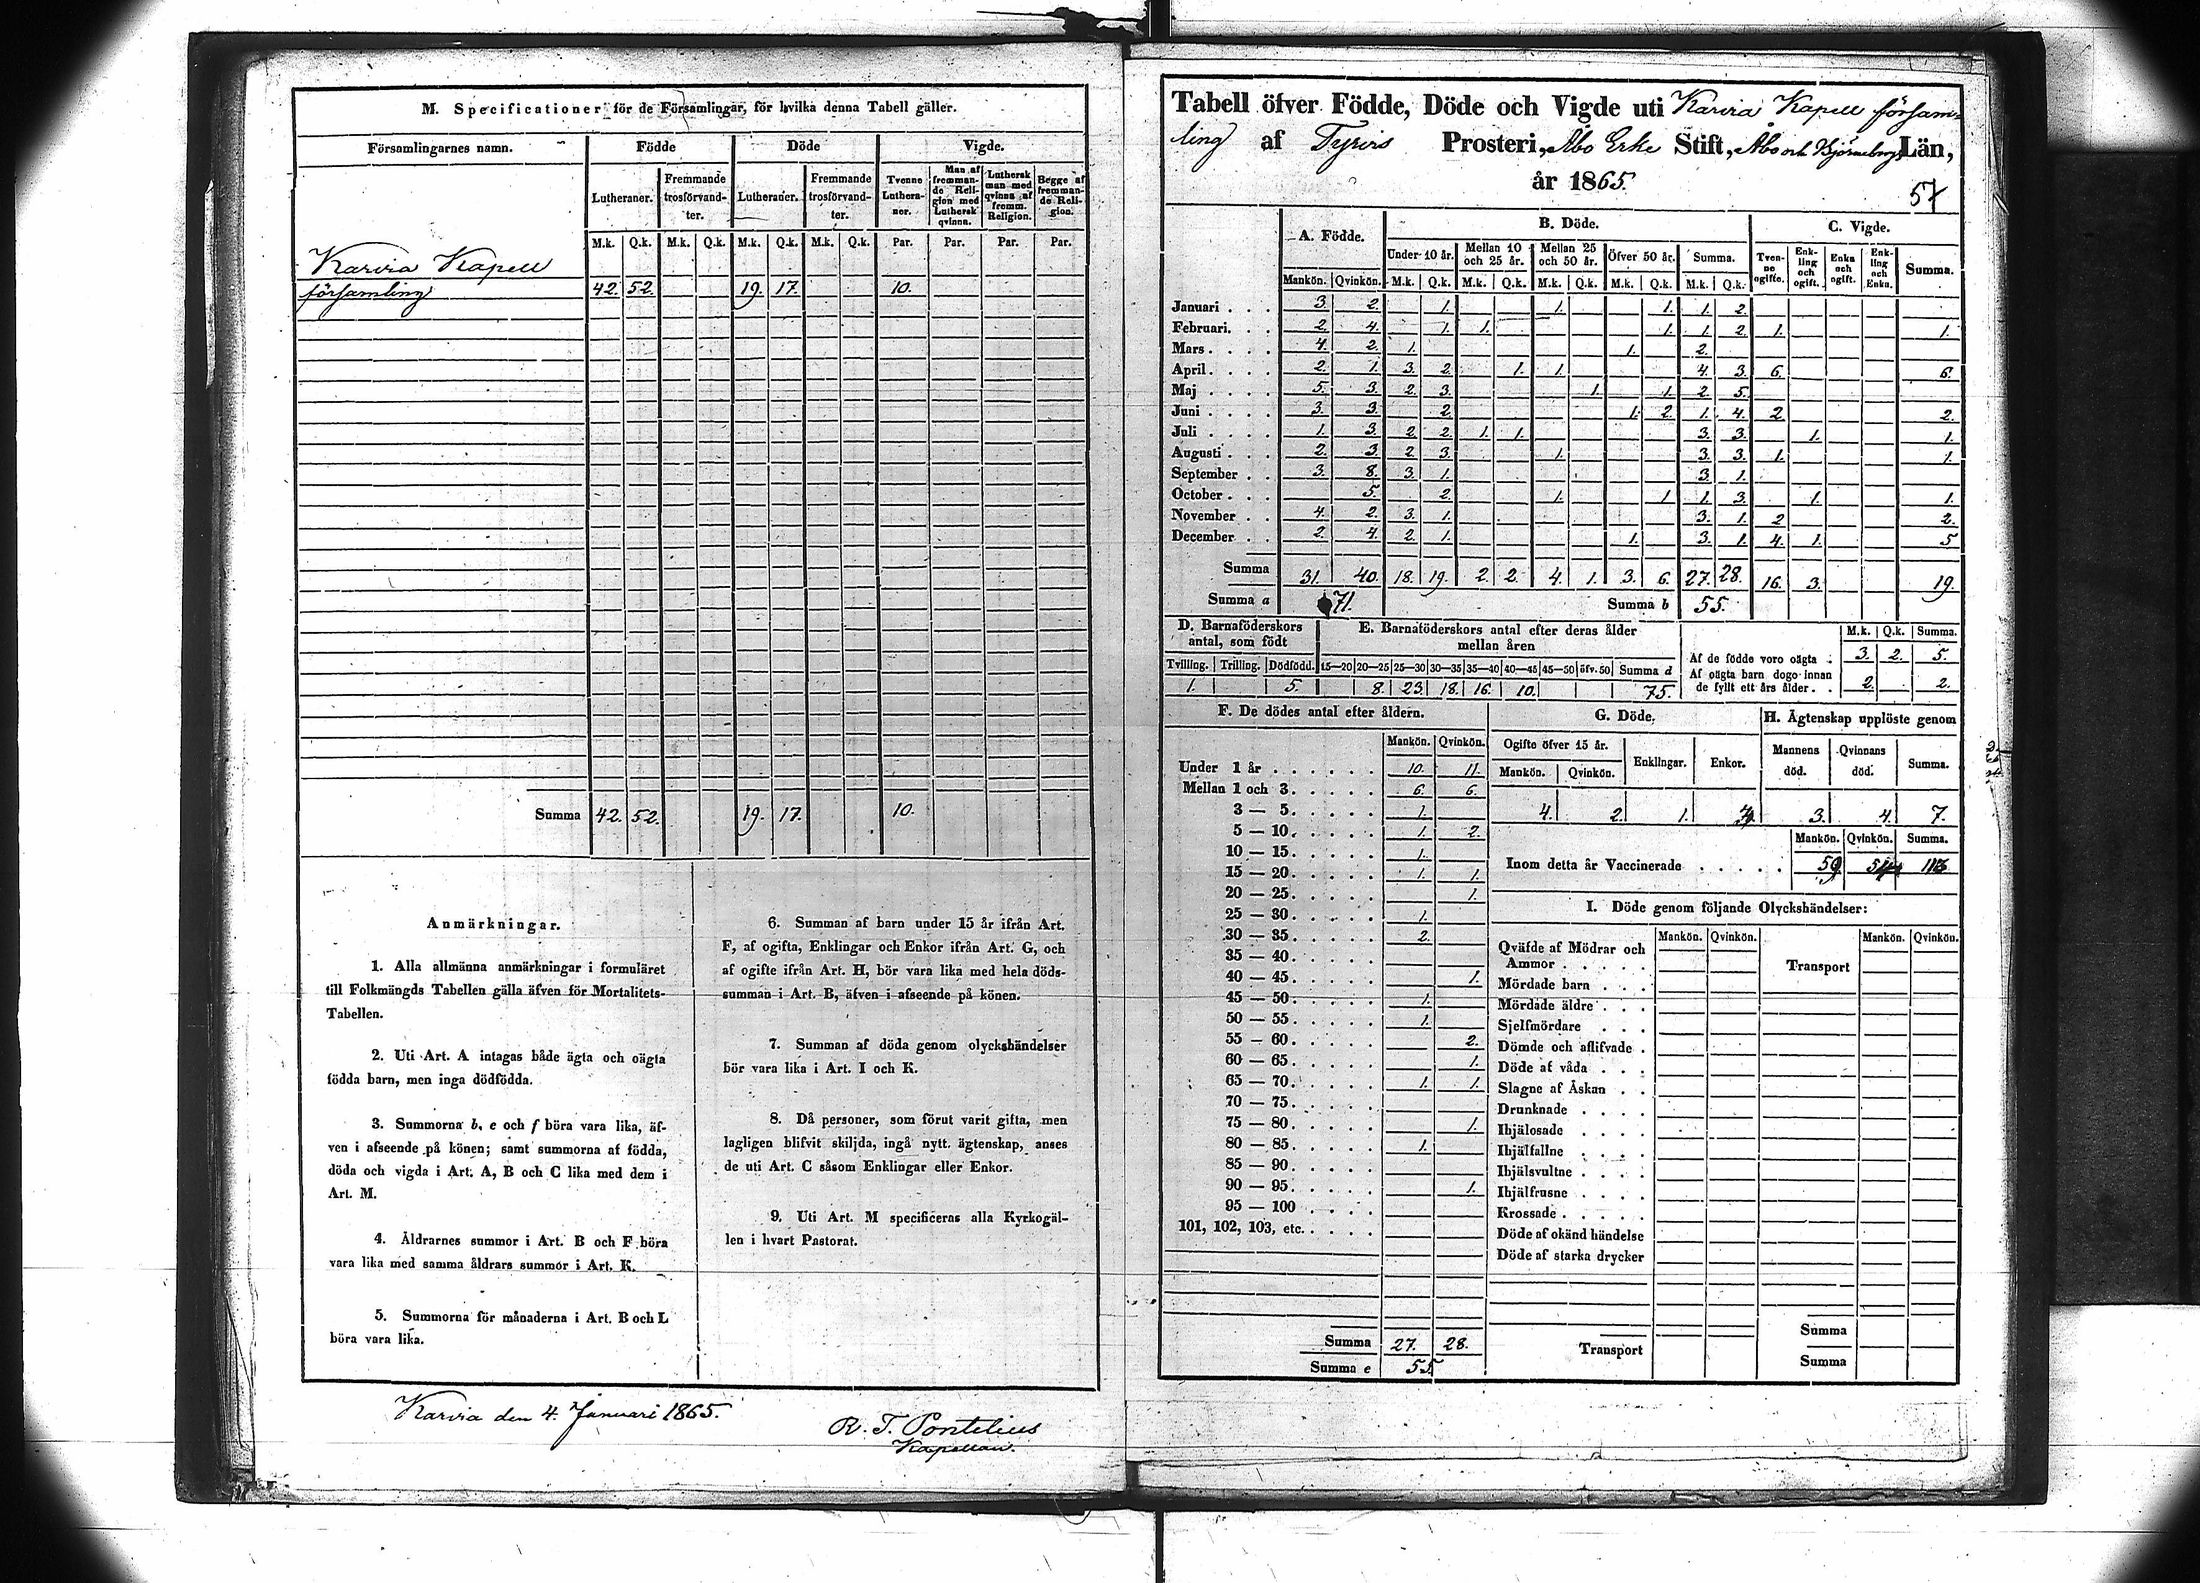 M. Specificationer för de Församlingar, för hvilka denna Tabell gäller.
Församlingarnes namn. Födde Döde Vigde.
Lutheraner. Fremmande trosförvandter. Lutheraner. Fremmande trosförvandter. Tvenne Lutheraner. Man af fremmande Religion med Luthersk qvinna. Luthersk man med qvinna af fremm. Religion. Begge af fremmande Religion.
M.k. Q.k. M.k. Q.k. M.k. Q.k. M.k. Q.k. Par. Par. Par. Par.
Karvia Kapell
församling 42. 52. 19. 17. 10.
Summa 42. 52. 19. 17. 10.
Anmärkningar.
1. Alla allmänna anmärkningar i formuläret
till Folkmängds Tabellen gälla äfven för Mortalitets-
Tabellen.
2. Uti Art. A intagas både ägta och oägta
födda barn, men inga dödfödda.
3. Summorna b, e och f böra vara lika, äf-
ven i afseende på könen; samt summorna af födda,
döda och vigda i Art. A, B och C lika med dem i
Art. M.
4. Åldrarnes summor i Art. B och F böra
vara lika med samma åldrars summor i Art. K.
5. Summorna för månaderna i Art. B och L
böra vara lika.
6. Summan af barn under 15 år ifrån Art.
F, af ogifta, Enklingar och Enkor ifrån Art. G, och
af ogifte ifrån Art. H, bör vara lika med hela döds-
summan i Art. B, äfven i afseende på könen.
7. Summan af döda genom olyckshändelser
bör vara lika i Art. I och K.
8. Då personer, som förut varit gifta, men
lagligen blifvit skiljda, ingå nytt ägtenskap, anses
de uti Art. C såsom Enklingar eller Enkor.
9. Uti Art. M specificeras alla Kyrkogäl-
len i hvart Pastorat.
Karvia den 4. Januari 1865.
R. T. Pontelius
Kapellan.
Tabell öfver Födde, Döde och Vigde uti Karvia Kapell försam-
ling af Tyrvis Prosteri, Åbo Erke Stift, Åbo och Björneborgs Län,
år 1865.
57
A. Födde. B. Döde. C. Vigde.
Under 10 år. Mellan 10 och 25 år. Mellan 25 och 50 år. Öfver 50 år. Summa. Tvenne ogifte. Enkling och ogift. Enka och ogift. Enkling och Enka. Summa.
Mankön. Qvinkön. M.k. Q.k. M.k. Q.k. M.k. Q.k. M.k. Q.k. M.k. Q.k.
Januari . . . 3. 2. 1. 1. 1. 1. 2.
Februari. . . 2. 4. 1. 1. 1. 1. 2. 1. 1.
Mars . . . . 4. 2. 1. 1. 2.
April. . . . 2. 1. 3. 2. 1. 1. 4. 3. 6. 6.
Maj . . . . 5. 3. 2. 3. 1. 1. 2. 5.
Juni . . . . 3. 3. 2. 1. 2. 1. 4. 2. 2.
Juli . . . . 1. 3. 2. 2. 1. 1. 3. 3. 1. 1.
Augusti . . . 2. 3 2. 3. 1. 3. 3. 1. 1.
September . . 3. 8. 3. 1. 3. 1.
October . . . 5. 2. 1. 1 1. 3. 1. 1.
November . . 4. 2. 3. 1. 3. 1. 2 2.
December . . 2. 4. 2. 1. 1. 3. 1. 4. 1. 5
Summa 31. 40. 18. 19. 2. 2. 4. 1. 3. 6. 27. 28. 16. 3. 19.
Summa a 71. Summa b 55.
D. Barnaföderskors antal, som födt
Tvilling. Trilling. Dödfödd.
1. 5.
E. Barnaföderskors antal efter deras ålder mellan åren
15—20 20—25 25—30 30—35 35—40 40—45 45—50 öfv. 50 Summa d
8. 23. 18. 16. 10. 75.
M.k. Q.k. Summa.
Af de födde voro oägta . 3. 2. 5.
Af oägta barn dogo innan
de fyllt ett års ålder . . 2. 2.
F. De dödes antal efter åldern.
Mankön. Qvinkön.
Under 1 år . . . . . . 10. 11.
Mellan 1 och 3. . . . . 6. 6.
3 — 5. . . . . 1.
5 — 10. . . . . 1. 2.
10 — 15. . . . . 1.
15 — 20. . . . . 1. 1.
20 — 25. . . . . 1.
25 — 30. . . . . 1.
30 — 35. . . . . 2.
35 — 40. . . . .
40 — 45. . . . . 1.
45 — 50. . . . . 1.
50 — 55. . . . . 1.
55 — 60. . . . . 2.
60 — 65. . . . . 1.
65 — 70. . . . . 1. 1.
70 — 75. . . . .
75 — 80. . . . . 1.
80 — 85. . . . . 1.
85 — 90. . . . .
90 — 95. . . . . 1.
95 — 100 . . . .
101, 102, 103, etc. . . . .
Summa 27. 28.
Summa e 55.
G. Döde.
Ogifte öfver 15 år. Enklingar. Enkor.
Mankön. Qvinkön.
4. 2. 1.
H. Ägtenskap upplöste genom
Mannens död. Qvinnans död. Summa.
3. 4. 7.
Mankön. Qvinkön. Summa.
Inom detta år Vaccinerade . . . . . 59
I. Döde genom följande Olyckshändelser:
Mankön. Qvinkön. Mankön. Qvinkön.
Qväfde af Mödrar och
Ammor . . . . . Transport
Mördade barn . . .
Mördade äldre . . .
Sjelfmördare . . .
Dömde och aflifvade .
Döde af våda . . .
Slagne af Åskan . .
Drunknade . . . .
Ihjälosade . . . .
Ihjälfallne . . . .
Ihjälsvultne . . . .
Ihjälfrusne . . . .
Krossade . . . . .
Döde af okänd händelse
Döde af starka drycker
Transport Summa
Summa